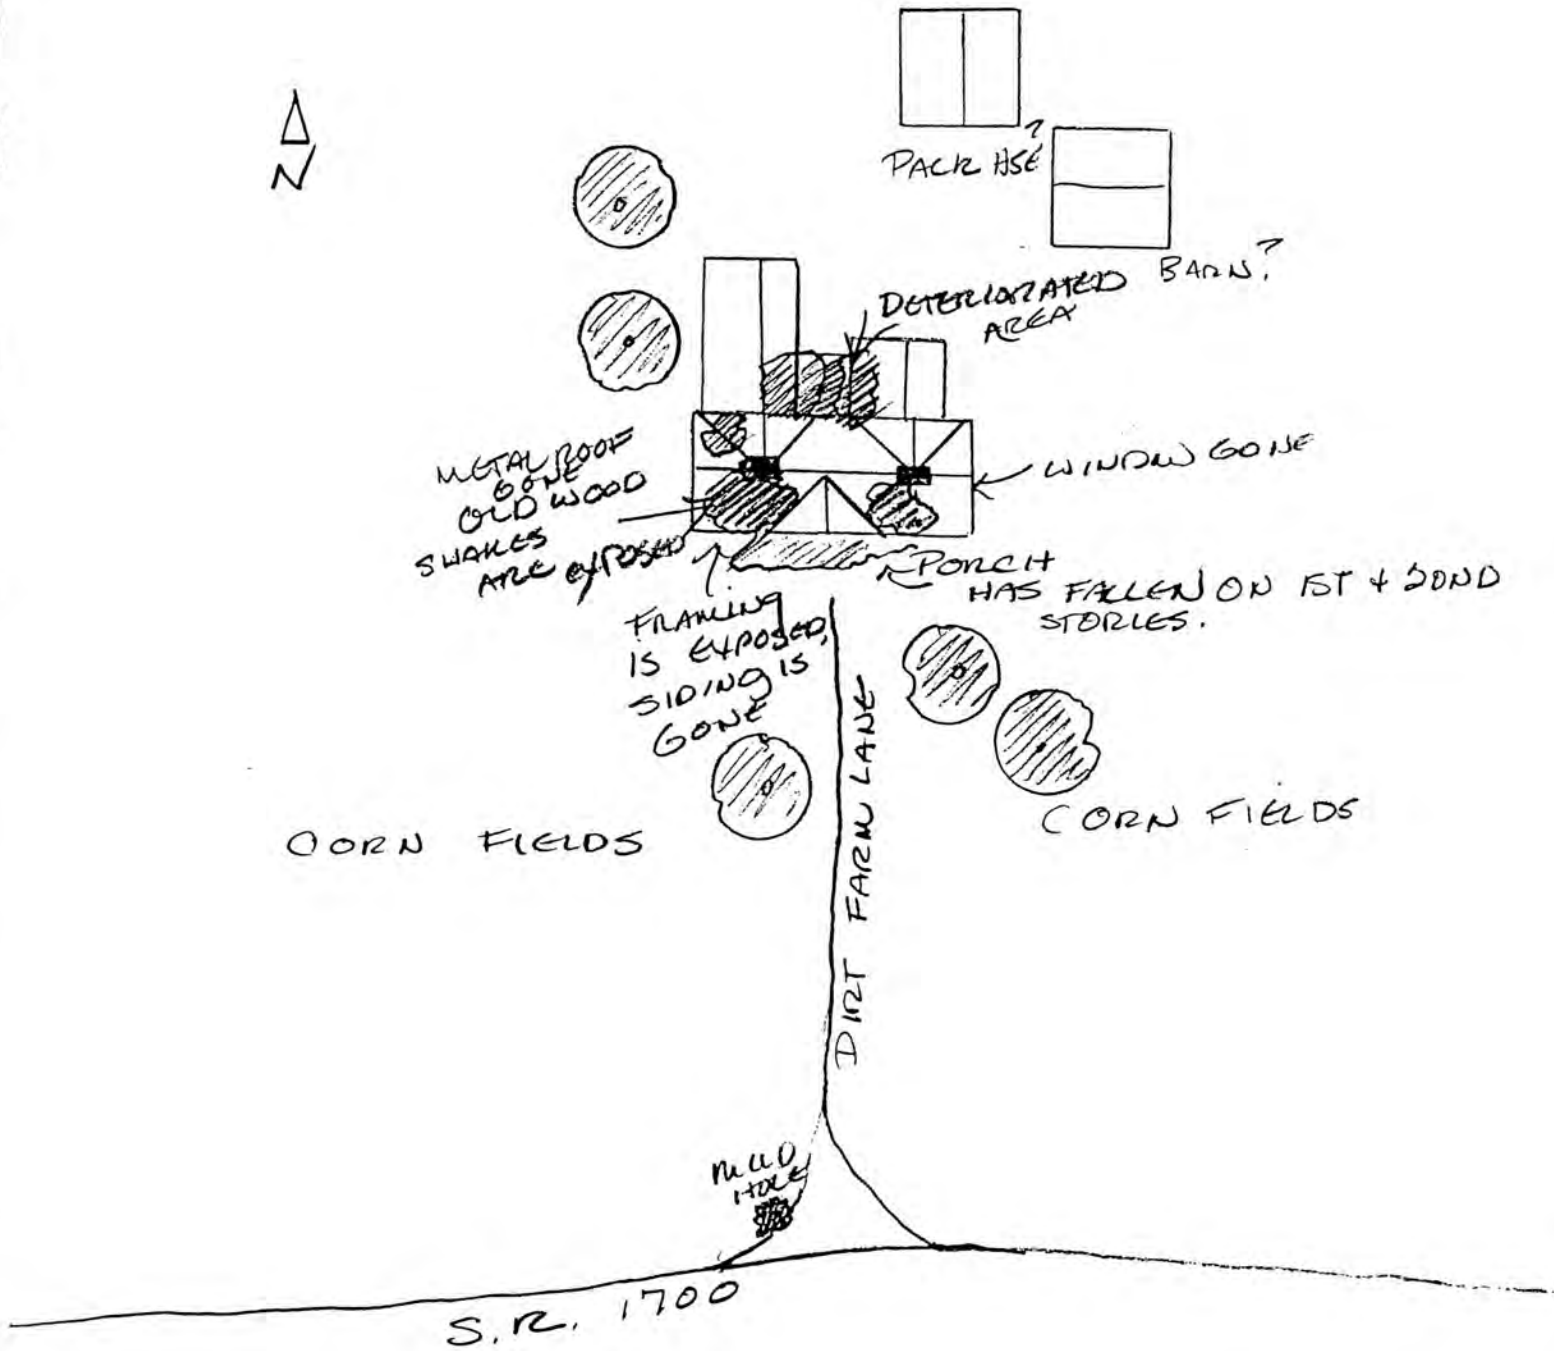 N
PACK HSE ?
BARN ?
DETERIORATED
AREA
METAL ROOF
GONE
OLD WOOD
SHAKES
ARE EXPOSED
WINDOW GONE
PORCH
HAS FALLEN ON 1ST + 2OND
STORIES.
FRAMING
IS EXPOSED,
SIDING IS
GONE
CORN FIELDS
CORN FIELDS
DIRT FARM LANE
MUD
HOLE
S.R. 1700